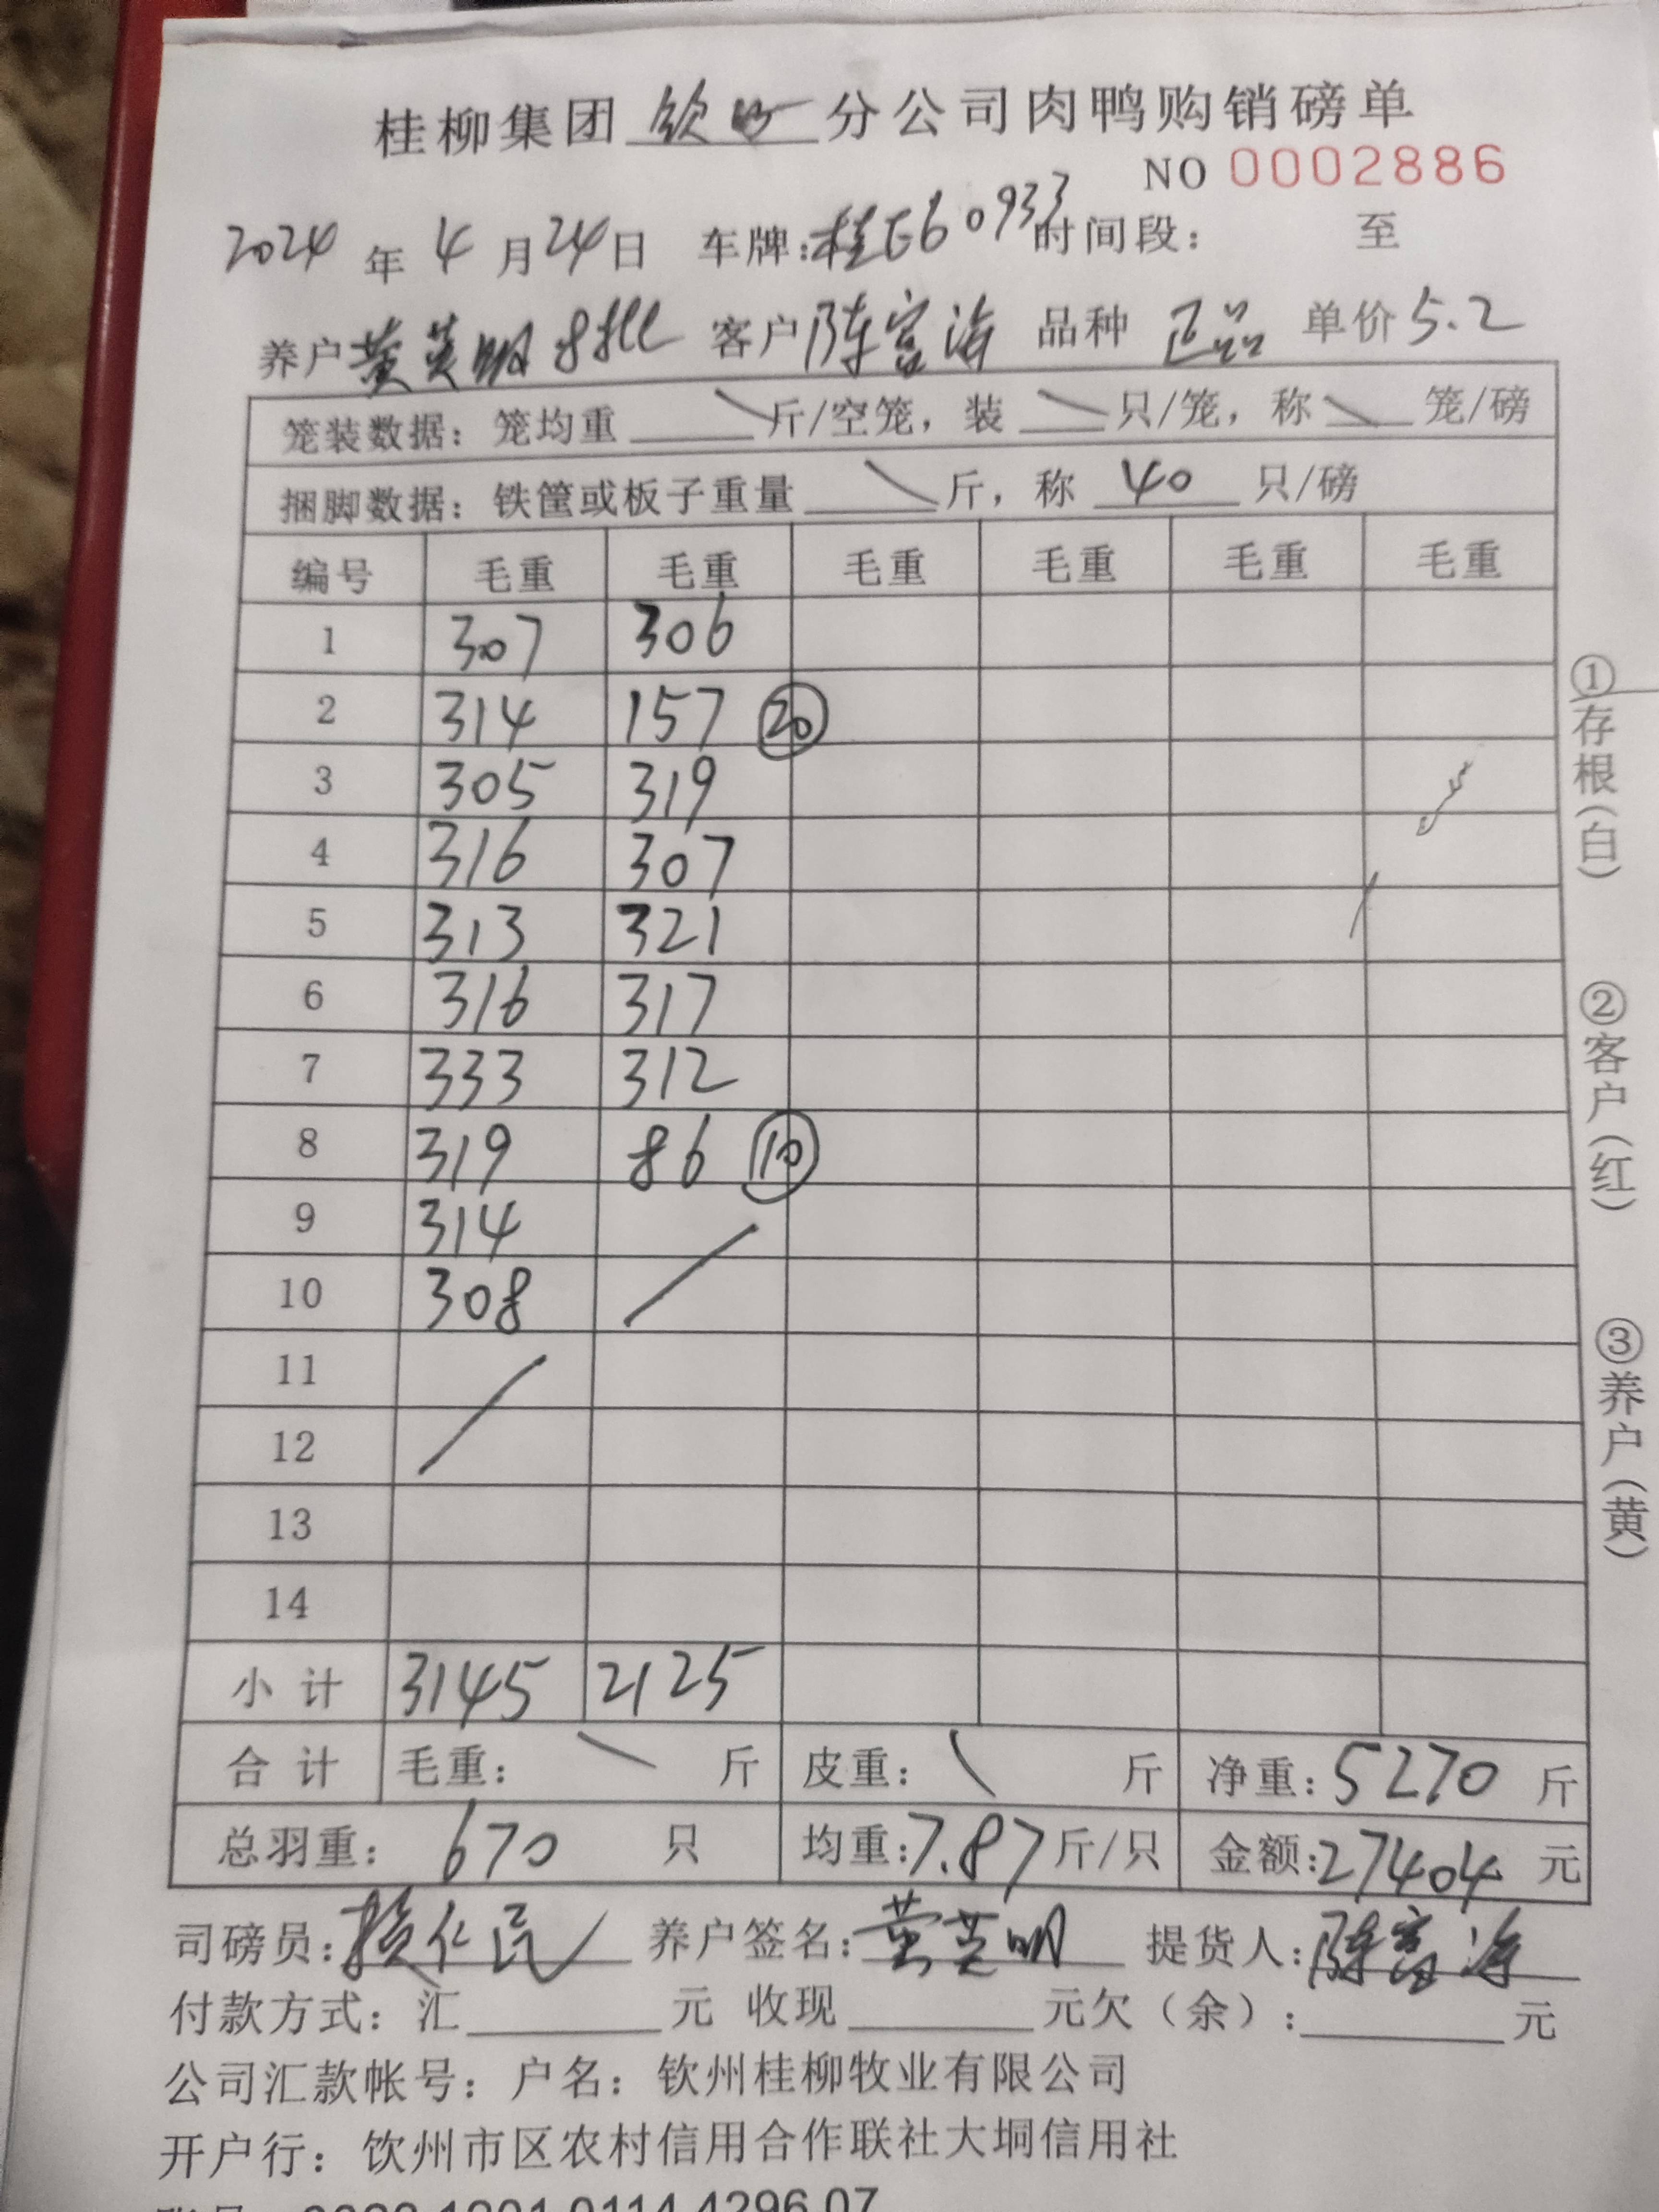 桂柳集团 钦州 分公司肉鸭购销磅单
NO 0002886
2024 年 4 月 24 日 车牌: 桂E60933 时间段: 至
养户 黄英明 8批 客户 陈富海 品种 正品 单价 5.2
笼装数据: 笼均重 斤/空笼, 装 只/笼, 称 笼/磅
捆脚数据: 铁筐或板子重量 斤, 称 40 只/磅
编号 毛重 毛重 毛重 毛重 毛重 毛重
1 307 306
2 314 157 ⑳
3 305 319
4 316 307
5 313 321
6 316 317
7 333 312
8 319 86 ⑩
9 314
10 308
11
12
13
14
小计 3145 2125
合计 毛重: 斤 皮重: 斤 净重: 5270 斤
总羽重: 670 只 均重: 7.87 斤/只 金额: 27404 元
司磅员: 仁民 养户签名: 黄英明 提货人: 陈富海
付款方式: 汇 元 收现 元欠(余): 元
公司汇款帐号: 户名: 钦州桂柳牧业有限公司
开户行: 钦州市区农村信用合作联社大垌信用社
①存根(白)
②客户(红)
③养户(黄)